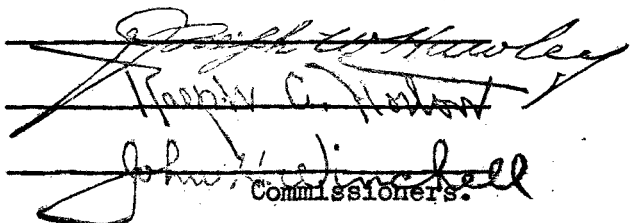 Joseph W Hawley
Ralph C. Horton
John K. Winchell
Commissioners.